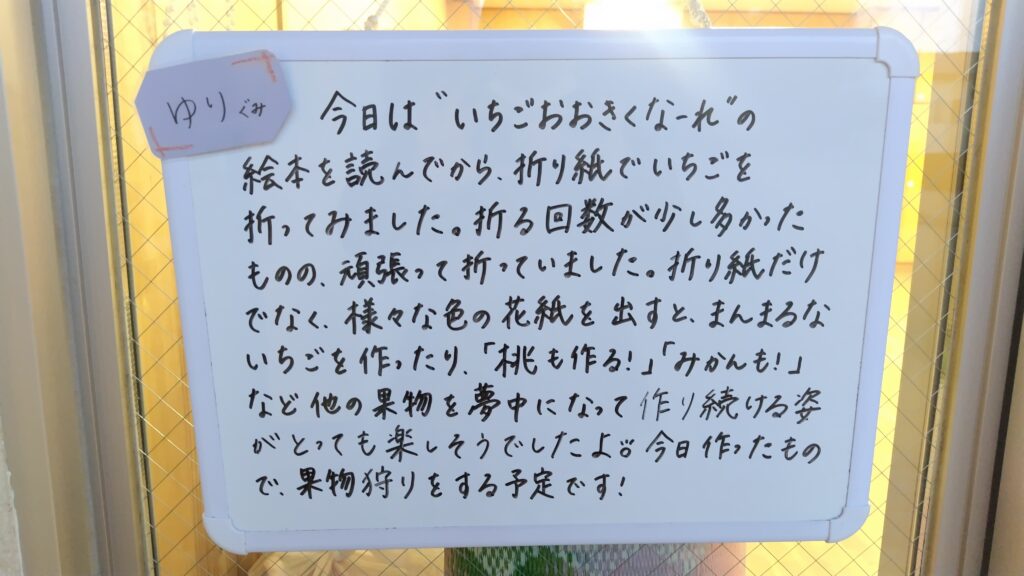 ゆりぐみ
今日は"いちごおおきくなーれ"の
絵本を読んでから、折り紙でいちごを
折ってみました。折る回数が少し多かった
ものの、頑張って折っていました。折り紙だけ
でなく、様々な色の花紙を出すと、まんまるな
いちごを作ったり、「桃も作る!」「みかんも!」
など他の果物を夢中になって作り続ける姿
がとっても楽しそうでしたよ。今日作ったもの
で、果物狩りをする予定です!